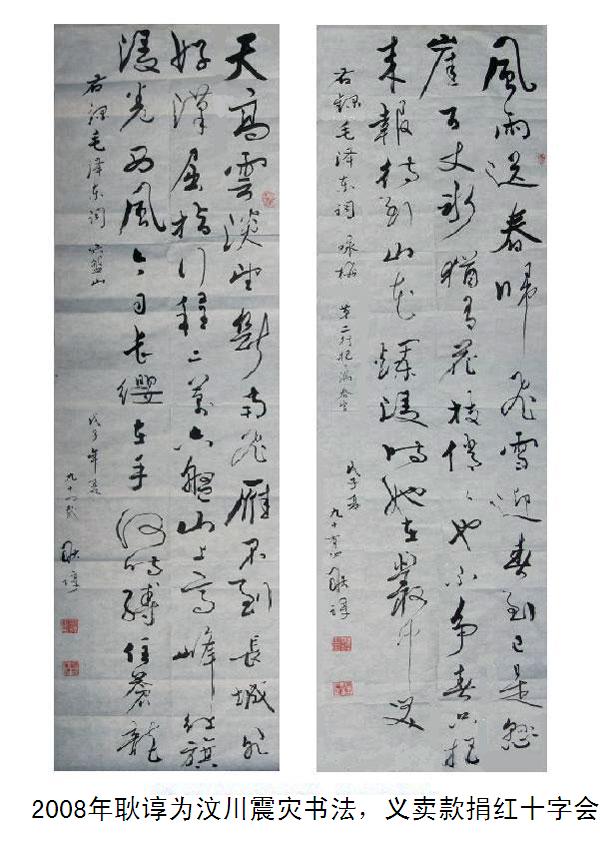 風雨送春歸飛雪迎春到已是懸
崖百丈冰猶有花枝俏俏也不争春只把
来報待到山花爛漫時她在叢中笑
右録毛泽东詞咏梅 第二行把漏春字
戊子夏 九十有四 耿諄
天高雲淡望斷南飛雁不到長城非
好漢屈指行程二萬六盤山上高峰红旗
漫卷西風今日長纓在手何時縛住蒼龍
右録毛泽东詞六盤山
戊子年夏 九十四歲 耿諄
2008年耿谆为汶川震灾书法，义卖款捐红十字会